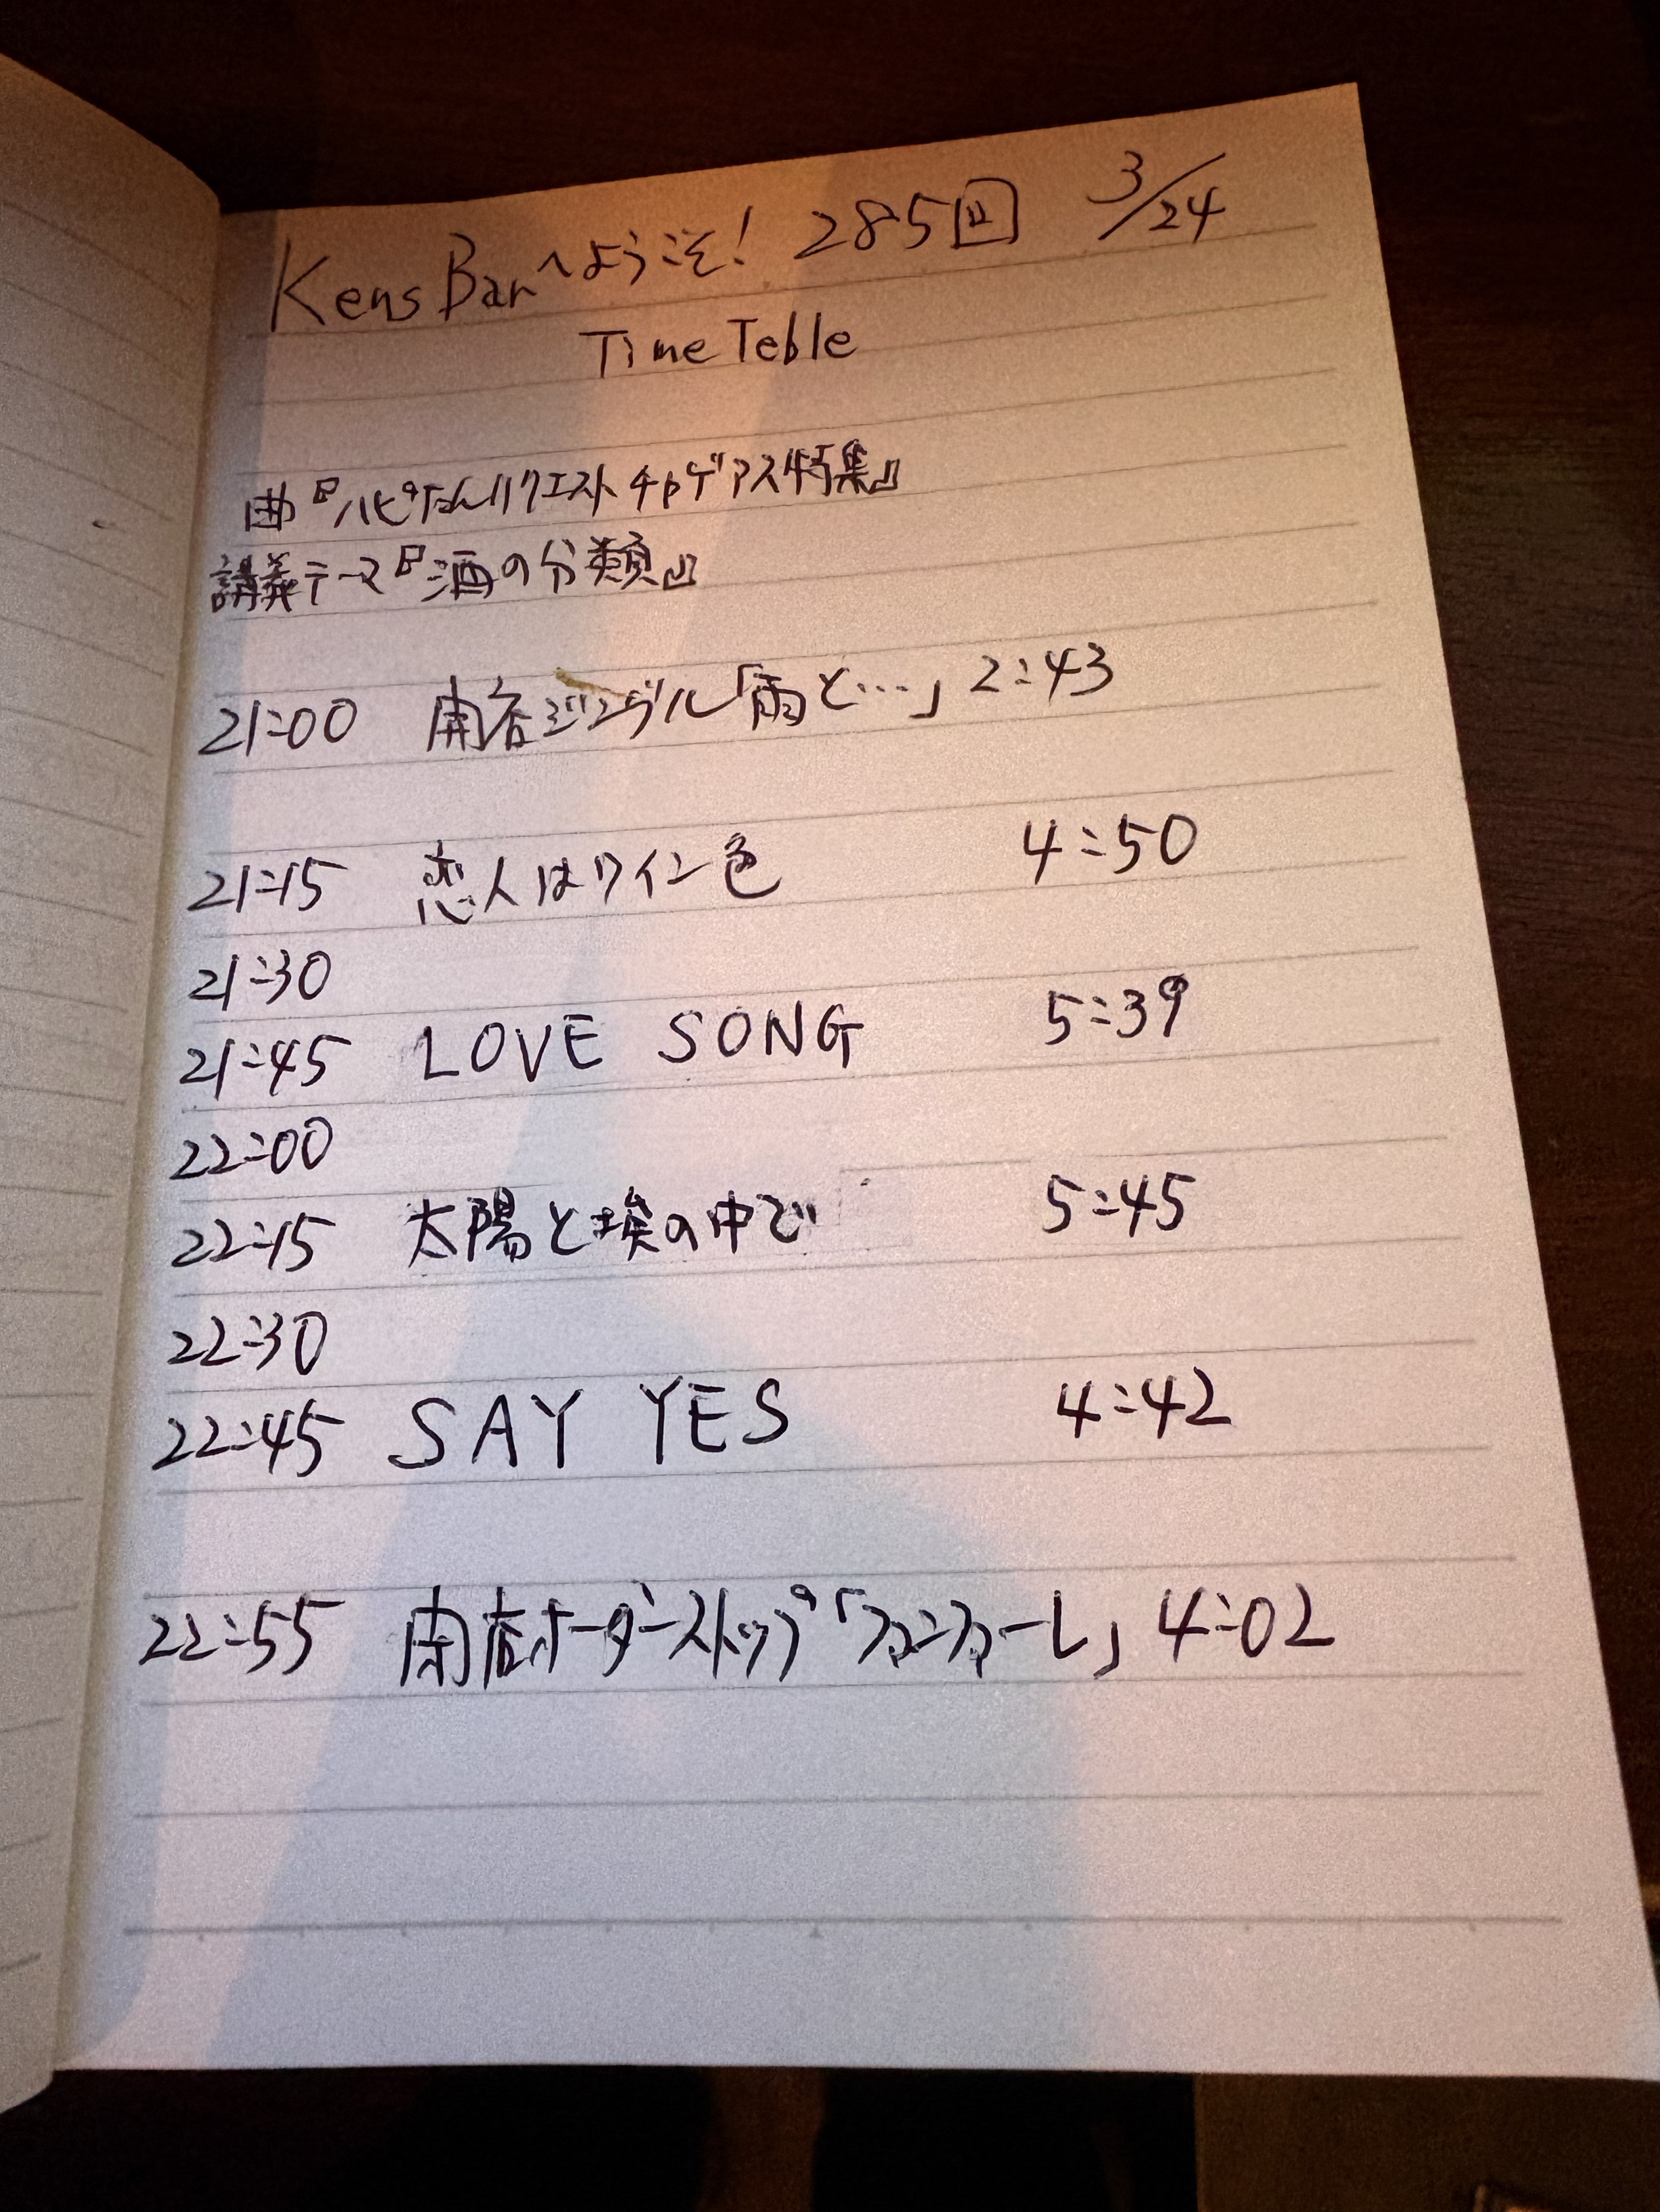 Kens Barへようこそ! 285回 3/24
Time Teble
曲『ハピなんリクエスト チャゲアス特集』
講義テーマ『酒の分類』
21:00 開店ジングル「雨と…」 2:43
21:15 恋人はワイン色 4:50
21:30
21:45 LOVE SONG 5:39
22:00
22:15 太陽と埃の中で 5:45
22:30
22:45 SAY YES 4:42
22:55 閉店オーダーストップ「ファンファーレ」 4:02